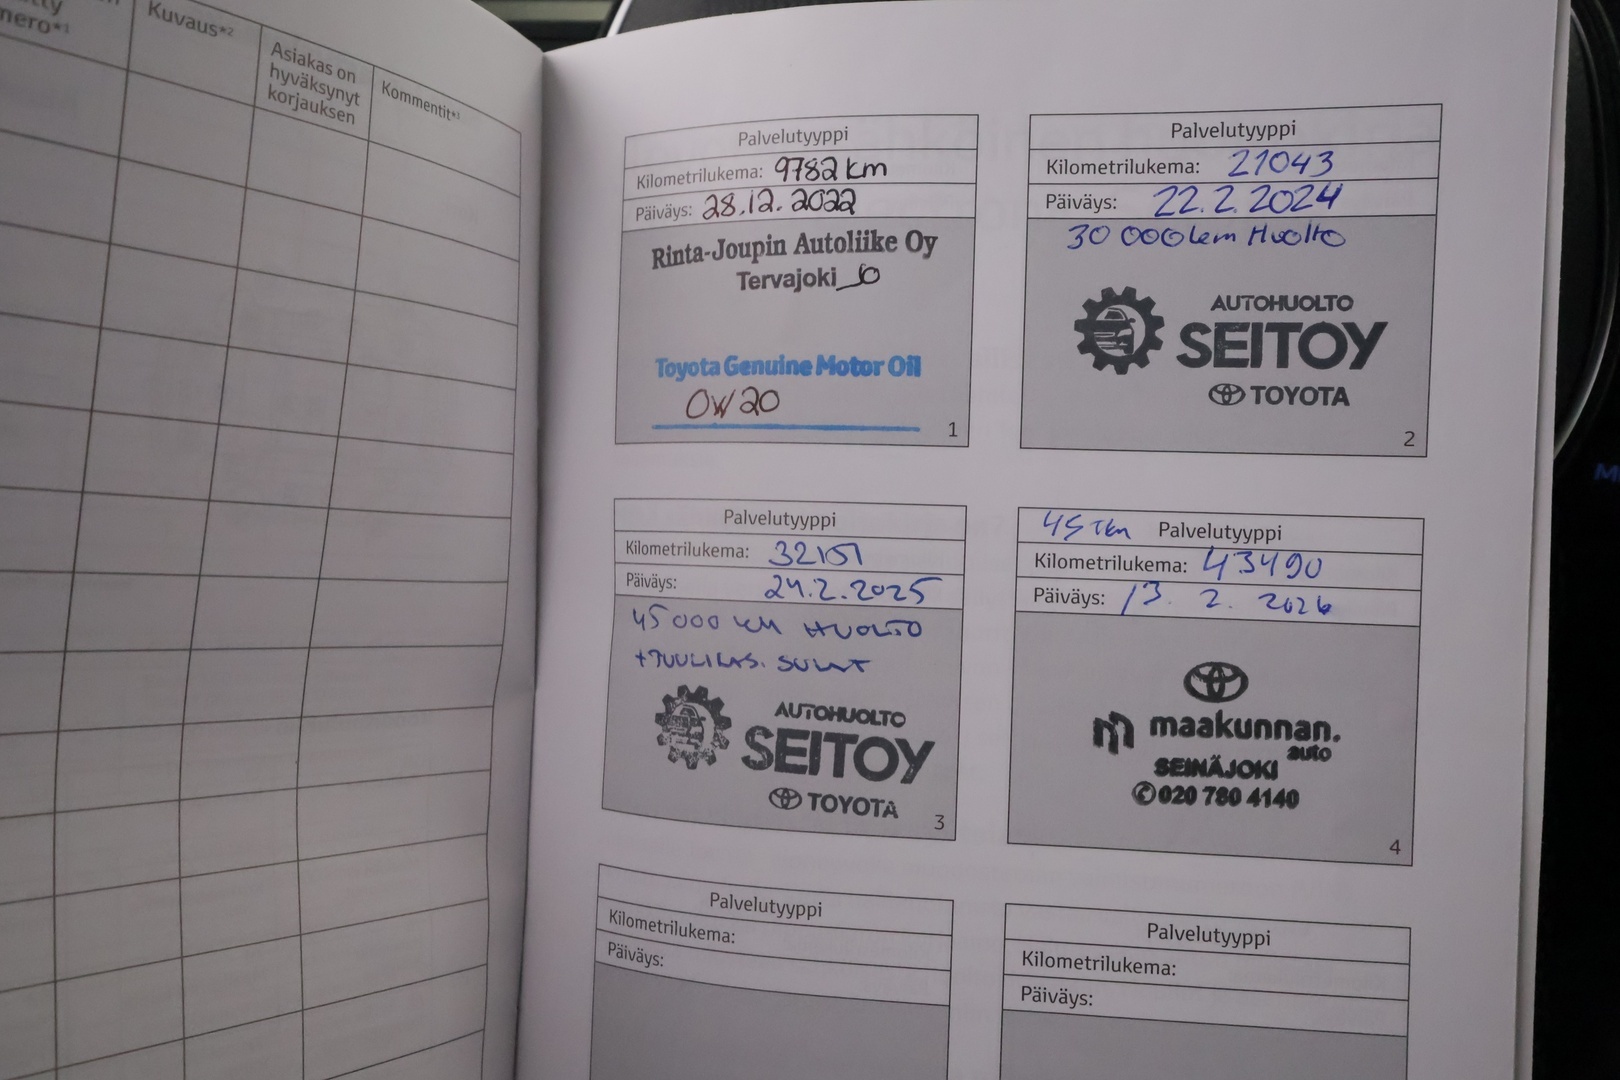 Kuvaus*2
Asiakas on
hyväksynyt
korjauksen
Kommentit*3
Palvelutyyppi
Kilometrilukema: 9782 km
Päiväys: 28.12.2022
Rinta-Joupin Autoliike Oy
Tervajoki
Toyota Genuine Motor Oil
0W20
1
Palvelutyyppi
Kilometrilukema: 21043
Päiväys: 22.2.2024
30 000km Huolto
AUTOHUOLTO
SEITOY
TOYOTA
2
Palvelutyyppi
Kilometrilukema: 32151
Päiväys: 24.2.2025
45000 km HUOLTO
+TUULILAS. SULAT
AUTOHUOLTO
SEITOY
TOYOTA
3
45 Tkm Palvelutyyppi
Kilometrilukema: 43490
Päiväys: 13. 2. 2026
maakunnan.
auto
SEINÄJOKI
020 780 4140
4
Palvelutyyppi
Kilometrilukema:
Päiväys:
Palvelutyyppi
Kilometrilukema:
Päiväys: